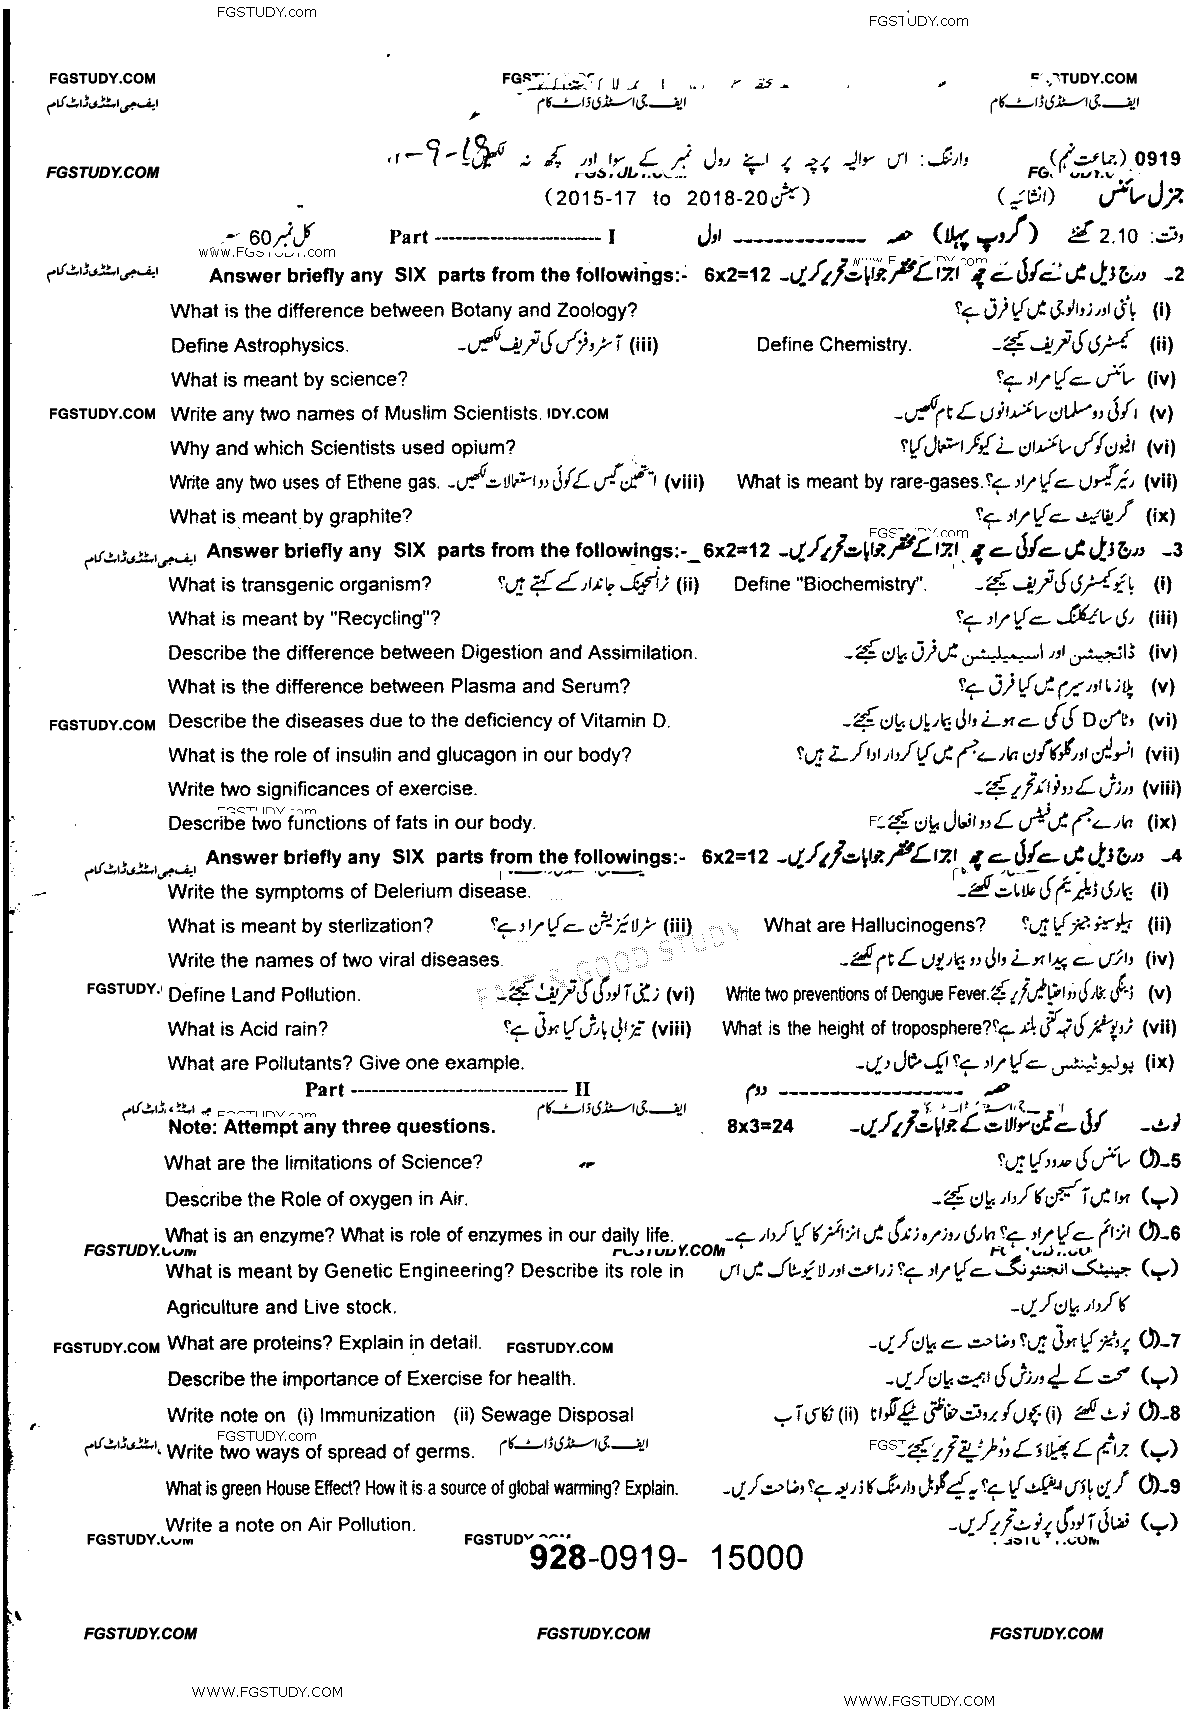 FGSTUDY.com FGSTUDY.com
FGSTUDY.COM TUDY.COM
ایف جی اسٹڈی ڈاٹ کام ایف جی اسٹڈی ڈاٹ کام ایف جی اسٹڈی ڈاٹ کام
0919 (جماعت نہم) وارننگ: اس سوالیہ پرچہ پر اپنے رول نمبر کے سوا اور کچھ نہ لکھیں
FGSTUDY.COM
جنرل سائنس (انشائیہ) (سیشن 2015-17 to 2018-20)
وقت: 2.10 گھنٹے (گروپ پہلا) حصہ ------------- اول Part ------------------------ I کل نمبر 60
www.FGSTUDY.com
2۔ درج ذیل میں سے کوئی سے چھ اجزا کے مختصر جوابات تحریر کریں۔ Answer briefly any SIX parts from the followings:- 6x2=12
What is the difference between Botany and Zoology? (i) باٹنی اور زوالوجی میں کیا فرق ہے؟
Define Astrophysics. (iii) آسٹروفزکس کی تعریف لکھیں۔ Define Chemistry. (ii) کیمسٹری کی تعریف کیجئے۔
What is meant by science? (iv) سائنس سے کیا مراد ہے؟
FGSTUDY.COM Write any two names of Muslim Scientists. IDY.COM (v) کوئی دو مسلمان سائنسدانوں کے نام لکھیں۔
Why and which Scientists used opium? (vi) افیون کو کس سائنسدان نے کیونکر استعمال کیا؟
Write any two uses of Ethene gas. (viii) ایتھین گیس کے کوئی دو استعمالات لکھیں۔ What is meant by rare-gases. (vii) ریئر گیسوں سے کیا مراد ہے؟
What is meant by graphite? (ix) گریفائیٹ سے کیا مراد ہے؟
3۔ درج ذیل میں سے کوئی سے چھ اجزا کے مختصر جوابات تحریر کریں۔ Answer briefly any SIX parts from the followings:- 6x2=12 ایف جی اسٹڈی ڈاٹ کام
What is transgenic organism? (ii) ٹرانسجینک جاندار کسے کہتے ہیں؟ Define "Biochemistry". (i) بائیو کیمسٹری کی تعریف کیجئے۔
What is meant by "Recycling"? (iii) ری سائیکلنگ سے کیا مراد ہے؟
Describe the difference between Digestion and Assimilation. (iv) ڈائجیشن اور اسیمیلیشن میں فرق بیان کیجئے۔
What is the difference between Plasma and Serum? (v) پلازما اور سیرم میں کیا فرق ہے؟
FGSTUDY.COM Describe the diseases due to the deficiency of Vitamin D. (vi) وٹامن D کی کمی سے ہونے والی بیماریاں بیان کیجئے۔
What is the role of insulin and glucagon in our body? (vii) انسولین اور گلوکاگون ہمارے جسم میں کیا کردار ادا کرتے ہیں؟
Write two significances of exercise. (viii) ورزش کے دو فوائد تحریر کیجئے۔
Describe two functions of fats in our body. (ix) ہمارے جسم میں فیٹس کے دو افعال بیان کیجئے۔
4۔ درج ذیل میں سے کوئی سے چھ اجزا کے مختصر جوابات تحریر کریں۔ Answer briefly any SIX parts from the followings:- 6x2=12 ایف جی اسٹڈی ڈاٹ کام
Write the symptoms of Delerium disease. (i) بیماری ڈیلیریم کی علامات لکھئے۔
What is meant by sterlization? (iii) سٹرلائزیشن سے کیا مراد ہے؟ What are Hallucinogens? (ii) ہیلوسینوجینز کیا ہیں؟
Write the names of two viral diseases. (iv) وائرس سے پیدا ہونے والی دو بیماریوں کے نام لکھئے۔
GOOD STUDY
FGSTUDY. Define Land Pollution. (vi) زمینی آلودگی کی تعریف کیجئے۔ Write two preventions of Dengue Fever. (v) ڈینگی بخار کی دو احتیاطیں تحریر کیجئے۔
What is Acid rain? (viii) تیزابی بارش کیا ہوتی ہے؟ What is the height of troposphere? (vii) ٹروپوسفیئر کی تہہ کتنی بلند ہے؟
What are Pollutants? Give one example. (ix) پولیوٹینٹس سے کیا مراد ہے؟ ایک مثال دیں۔
Part ------------------------------- II حصہ ------------------- دوم
ایف جی اسٹڈی ڈاٹ کام
Note: Attempt any three questions. 8x3=24 نوٹ۔ کوئی سے تین سوالات کے جوابات تحریر کریں۔
What are the limitations of Science? 5۔(ا) سائنس کی حدود کیا ہیں؟
Describe the Role of oxygen in Air. (ب) ہوا میں آکسیجن کا کردار بیان کیجئے۔
What is an enzyme? What is role of enzymes in our daily life. 6۔(ا) انزائم سے کیا مراد ہے؟ ہماری روزمرہ زندگی میں انزائمز کا کیا کردار ہے۔
FGSTUDY.COM FGSTUDY.COM
What is meant by Genetic Engineering? Describe its role in (ب) جینیٹک انجینئرنگ سے کیا مراد ہے؟ زراعت اور لائیوسٹاک میں اس
Agriculture and Live stock. کا کردار بیان کریں۔
FGSTUDY.COM What are proteins? Explain in detail. FGSTUDY.COM 7۔(ا) پروٹینز کیا ہوتی ہیں؟ وضاحت سے بیان کریں۔
Describe the importance of Exercise for health. (ب) صحت کے لیے ورزش کی اہمیت بیان کریں۔
Write note on (i) Immunization (ii) Sewage Disposal 8۔(ا) نوٹ لکھئے (i) بچوں کو بروقت حفاظتی ٹیکے لگوانا (ii) نکاسی آب
FGSTUDY.com
Write two ways of spread of germs. ایف جی اسٹڈی ڈاٹ کام (ب) جراثیم کے پھیلاؤ کے دو طریقے تحریر کیجئے۔
What is green House Effect? How it is a source of global warming? Explain. 9۔(ا) گرین ہاؤس ایفیکٹ کیا ہے؟ یہ کیسے گلوبل وارمنگ کا ذریعہ ہے؟ وضاحت کریں۔
Write a note on Air Pollution. (ب) فضائی آلودگی پر نوٹ تحریر کریں۔
FGSTUDY.COM
928-0919- 15000
FGSTUDY.COM FGSTUDY.COM FGSTUDY.COM
WWW.FGSTUDY.COM WWW.FGSTUDY.COM